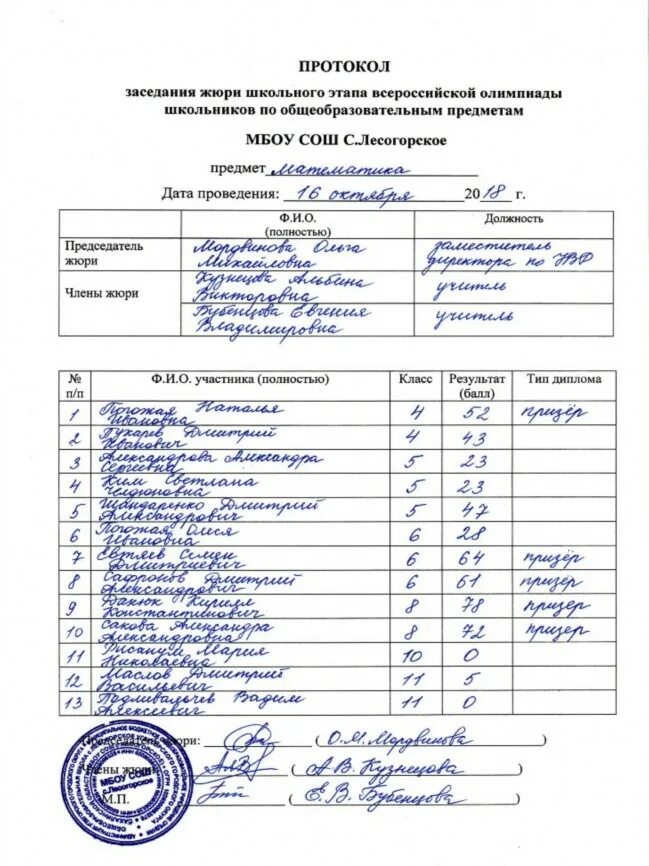 ПРОТОКОЛ
заседания жюри школьного этапа всероссийской олимпиады
школьников по общеобразовательным предметам
МБОУ СОШ С.Лесогорское
предмет Математика
Дата проведения: 16 октября 2018 г.
Ф.И.О. (полностью) Должность
Председатель жюри Мордвинова Ольга Михайловна заместитель директора по УВР
Члены жюри Кузнецова Альбина Викторовна учитель
Бубенцова Евгения Владимировна учитель
№ п/п Ф.И.О. участника (полностью) Класс Результат (балл) Тип диплома
1 Погожая Наталья Ивановна 4 52 призёр
2 Пухарев Дмитрий Иванович 4 43
3 Александрова Александра Сергеевна 5 23
4 Ким Светлана 5 23
5 Шандаренко Дмитрий Александрович 5 47
6 Погожая Олеся Ивановна 6 28
7 Евтяев Семен Дмитриевич 6 64 призёр
8 Сафронов Дмитрий Александрович 6 61 призёр
9 Данюк Кирилл Константинович 8 78 призёр
10 Сакова Александра Александровна 8 72 призер
11 Мария Николаевна 10 0
12 Маслов Дмитрий Васильевич 11 5
13 Подливальчев Вадим Алексеевич 11 0
Председатель жюри: ( О.М. Мордвинова )
Члены жюри: ( А.В. Кузнецова )
М.П. ( Е.В. Бубенцова )
МБОУ СОШ
с.Лесогорское